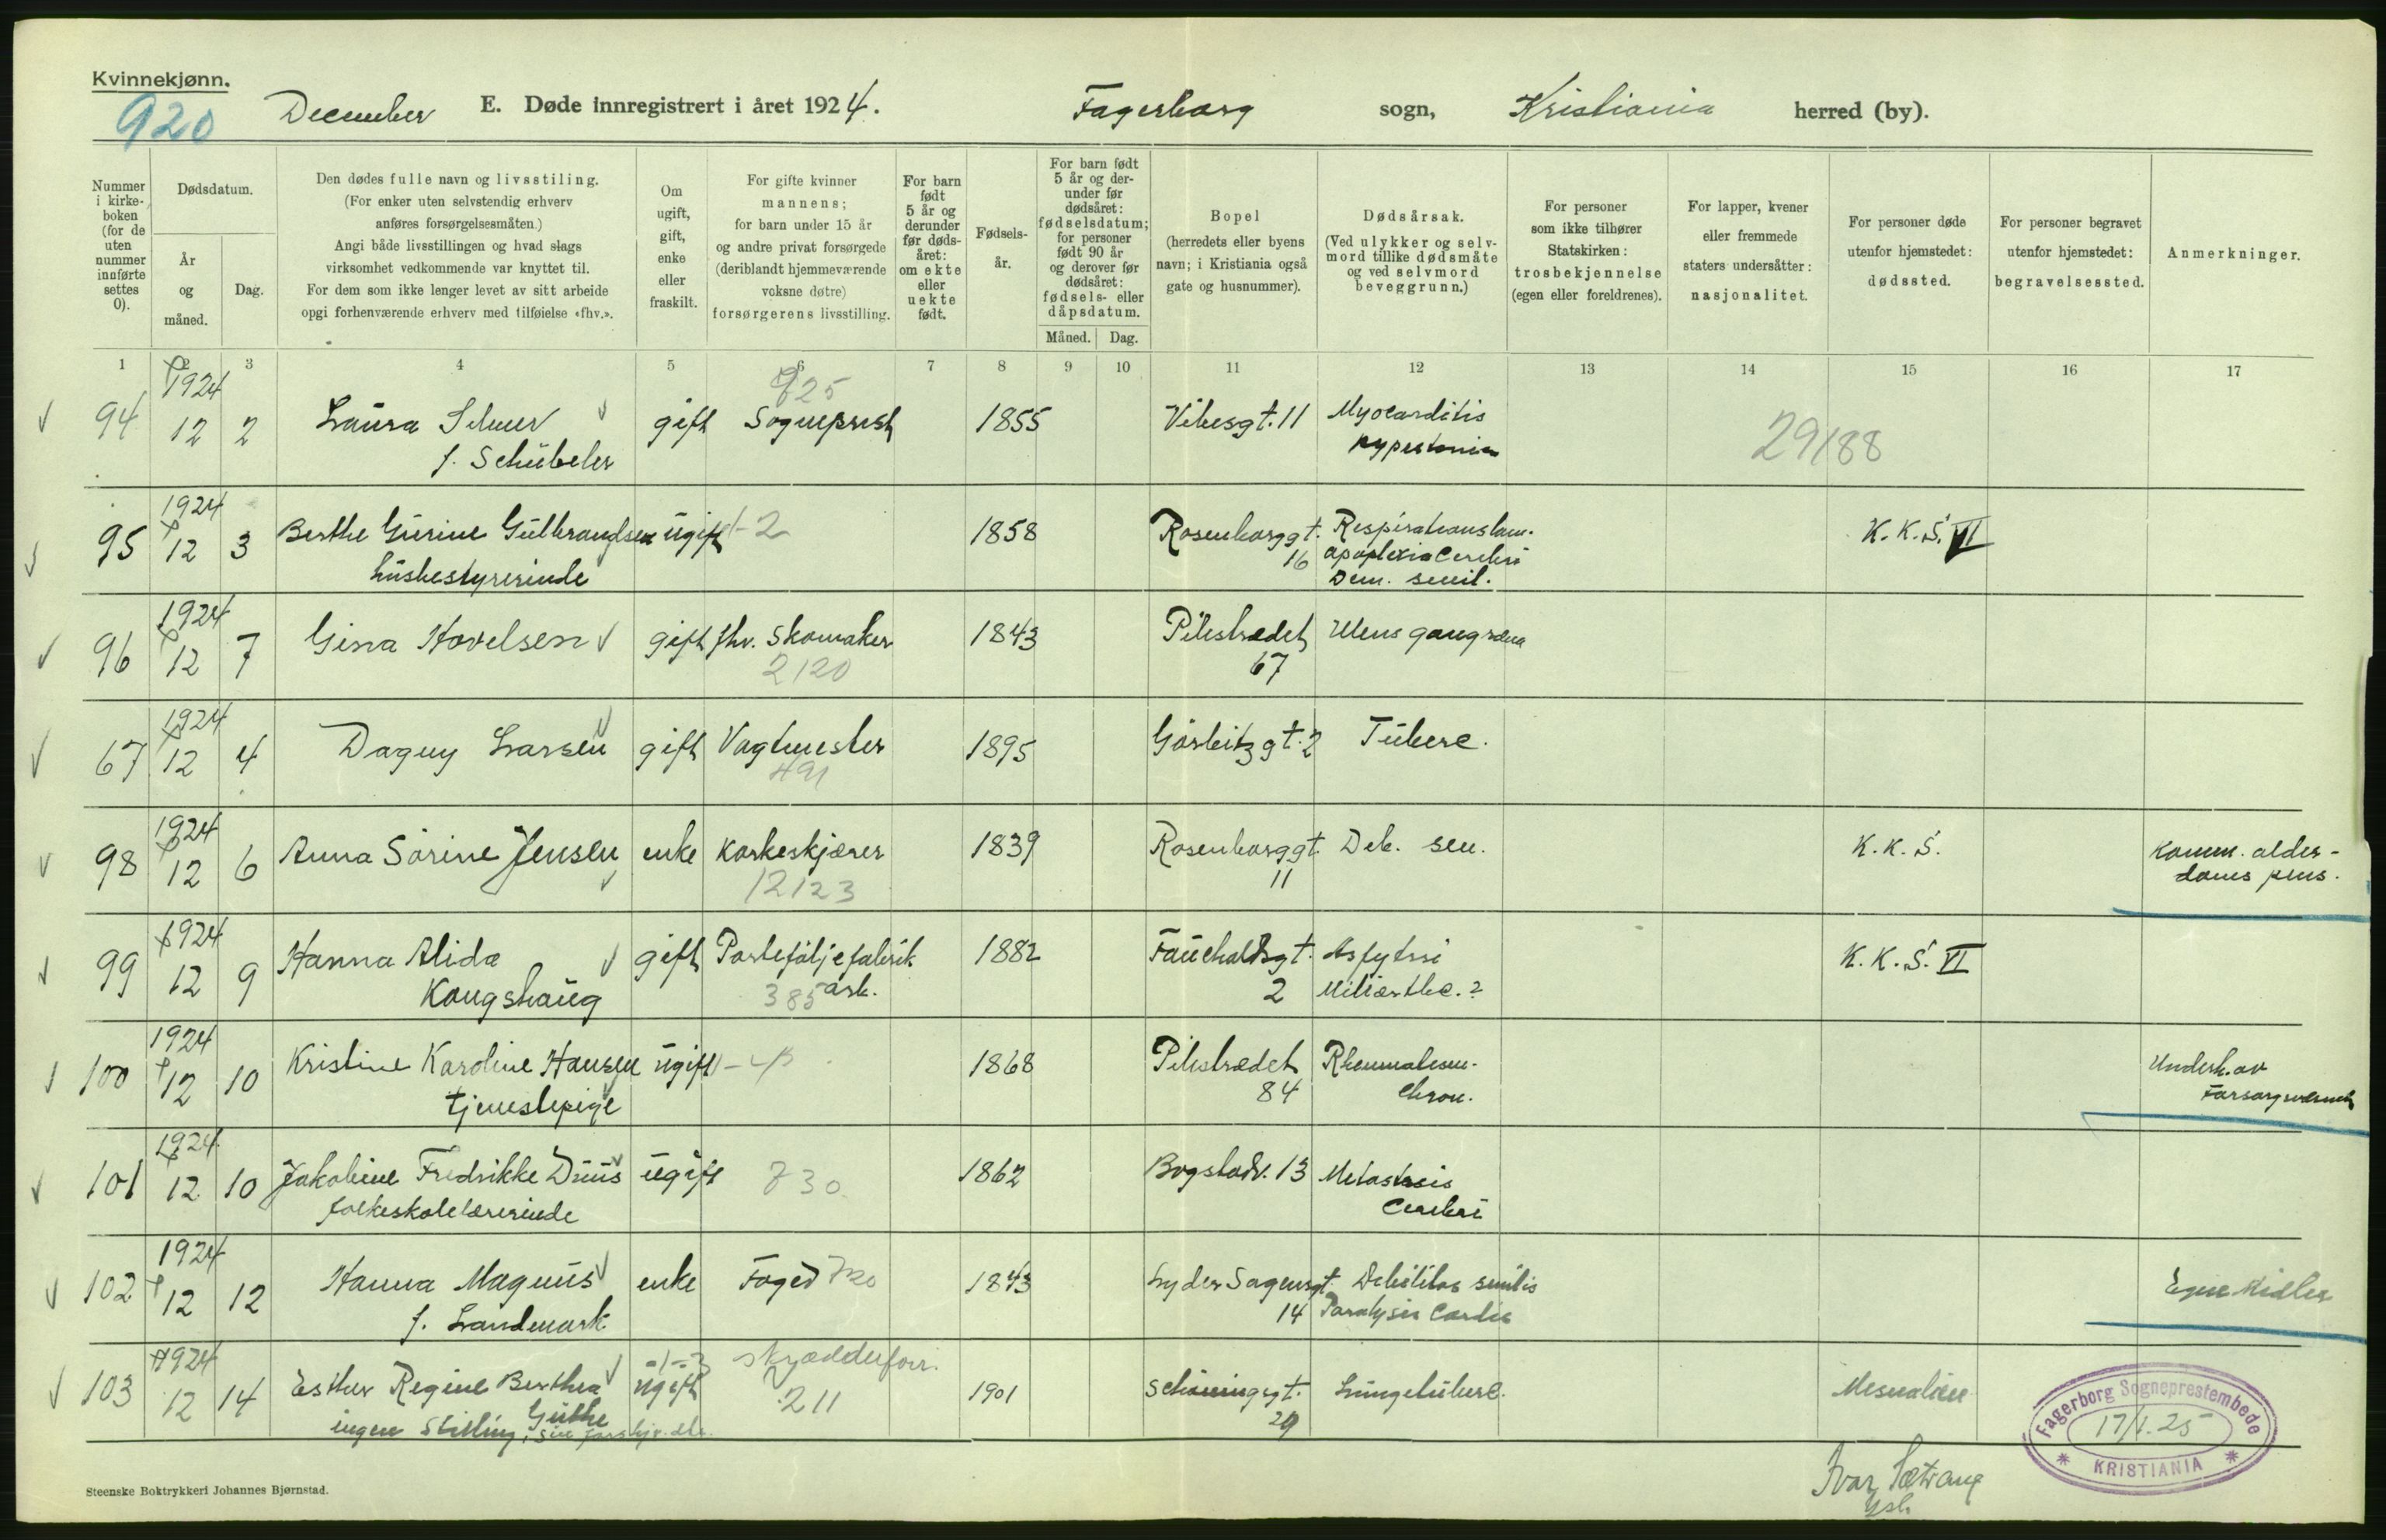 Kvinnekjønn.
920
December E. Døde innregistrert i året 1924. Fagerborg sogn, Kristiania herred (by).
Nummer i kirke- boken (for de uten nummer innførte settes 0).
Dødsdatum.
År og måned.
Dag.
Den dødes fulle navn og livsstiling.
(For enker uten selvstendig erhverv
anføres forsørgelsesmåten.)
Angi både livsstillingen og hvad slags
virksomhet vedkommende var knyttet til.
For dem som ikke lenger levet av sitt arbeide
opgi forhenværende erhverv med tilføielse «fhv.».
Om ugift, gift, enke eller fraskilt.
For gifte kvinner
mannens;
for barn under 15 år
og andre privat forsørgede
(deriblandt hjemmeværende
voksne døtre)
forsørgerens livsstilling.
For barn født 5 år og derunder før døds- året: om ekte eller uekte født.
Fødsels- år.
For barn født
5 år og der-
under før
dødsåret:
fødselsdatum;
for personer
født 90 år
og derover før
dødsåret:
fødsels- eller
dåpsdatum.
Måned. Dag.
Bopel
(herredets eller byens
navn; i Kristiania også
gate og husnummer).
Dødsårsak.
(Ved ulykker og selv-
mord tillike dødsmåte
og ved selvmord
beveggrunn.)
For personer
som ikke tilhører
Statskirken:
trosbekjennelse
(egen eller foreldrenes).
For lapper, kvener
eller fremmede
staters undersåtter:
nasjonalitet.
For personer døde
utenfor hjemstedet:
dødssted.
For personer begravet
utenfor hjemstedet:
begravelsessted.
Anmerkninger.
1 2 3 4 5 6 7 8 9 10 11 12 13 14 15 16 17
1924 825
94 12 2 Laura gift Sogneprest 1855 Vibesgt. 11 Myocarditis
f. Schübeler hypertonia 29/88
1924
95 12 3 Berthe Gurine Gulbrandsen ugift -2 1858 Rosenborggt. Respirationslam. K. K. S. VI
husbestyrerinde 16 apoplexia Cerebri
Dem. senil.
1924
96 12 7 Gina Hovelsen gift fhv. Skomaker 1843 Pilestrædet Ulcus gangræna
2120 67
1924
67 12 4 Dagny Larsen gift Vagtmester 1895 Gørbitzgt. 2 Tuberc.
491
1924
98 12 6 Anna Sørine Jensen enke Korkeskjærer 1839 Rosenborggt. Deb. sen. K. K. S. Komm. alder-
12123 11 doms pens.
1924
99 12 9 Hanna Alida gift Porteføljefabrik 1882 Fauchaldsgt. Asfyksi K. K. S. VI
Kongshaug 385 arb. 2 Miliærtbc. ?
1924
100 12 10 Kristine Karoline Hansen ugift 1868 Pilestrædet Rheumatism. Underh. av
tjenestepige 84 Chron. Forsorgsvæsenet
1924
101 12 10 Jakobine Fredrikke Duus ugift 730 1862 Bogstadv. 13 Metastasis
folkeskolelærerinde Cerebri
1924
102 12 12 Hanna Magnus enke Foged 720 1843 Lyder Sagensgt. Debilitas senilis Egne Midler
f. Landmark 14 Paralysis Cordis
1924 skrædderforr.
103 12 14 Esther Regine Berthea ugift 211 1901 Schøningsgt. Lungetuberc. Mesnalien
Guthe 29
ingen Stilling,
Fagerborg Sogneprestembede
17/1.25
KRISTIANIA
Ivar Sætrang
Steenske Boktrykkeri Johannes Bjørnstad.